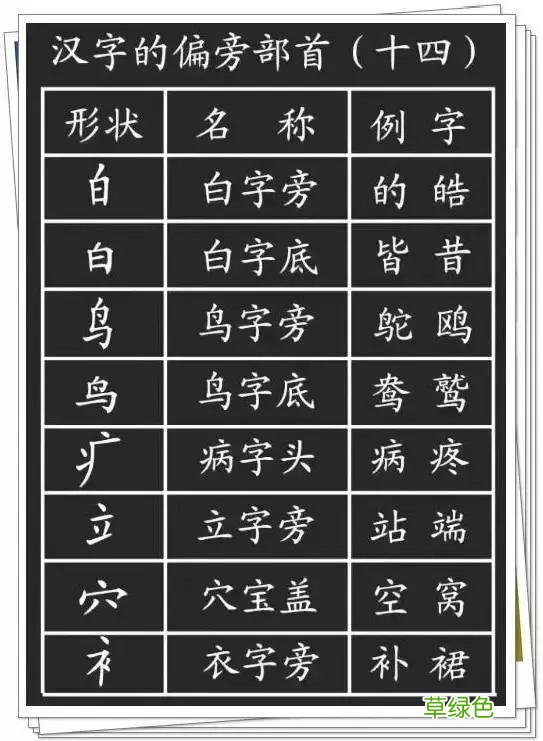 汉字的偏旁部首（十四）
形状 名称 例字
白 白字旁 的 皓
白 白字底 皆 昔
鸟 鸟字旁 鸵 鸥
鸟 鸟字底 鸯 鹫
疒 病字头 病 疼
立 立字旁 站 端
穴 穴宝盖 空 窝
衤 衣字旁 补 裙
草绿色